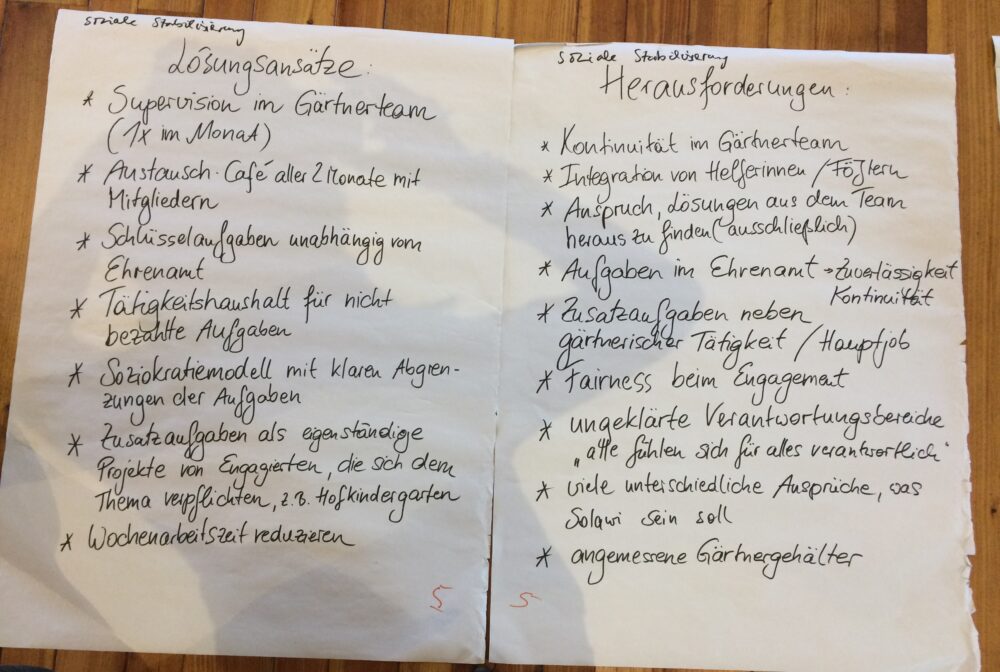 soziale Stabilisierung
Lösungsansätze:
* Supervision im Gärtnerteam
(1x im Monat)
* Austausch-Café aller 2 Monate mit
Mitgliedern
* Schlüsselaufgaben unabhängig vom
Ehrenamt
* Tätigkeitshaushalt für nicht
bezahlte Aufgaben
* Soziokratiemodell mit klaren Abgren-
zungen der Aufgaben
* Zusatzaufgaben als eigenständige
Projekte von Engagierten, die sich dem
Thema verpflichten, z.B. Hofkindergarten
* Wochenarbeitszeit reduzieren
5
soziale Stabilisierung
Herausforderungen:
* Kontinuität im Gärtnerteam
* Integration von Helferinnen / FÖJlern
* Anspruch, Lösungen aus dem Team
heraus zu finden (ausschließlich)
* Aufgaben im Ehrenamt → Zuverlässigkeit
Kontinuität
* Zusatzaufgaben neben
gärtnerischer Tätigkeit / Hauptjob
* Fairness beim Engagement
* ungeklärte Verantwortungsbereiche
„alle fühlen sich für alles verantwortlich"
* viele unterschiedliche Ansprüche, was
Solawi sein soll
* angemessene Gärtnergehälter
5